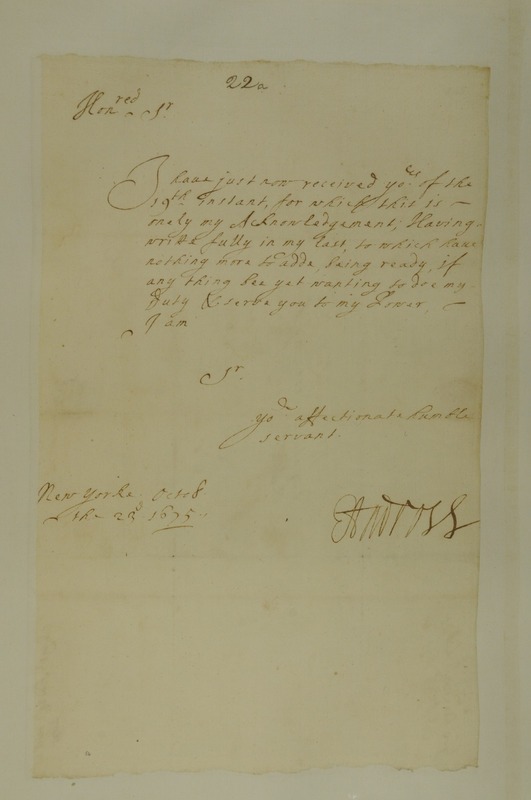 22a
Honred Sr
I haue just now received yors of the
19th Instant, for which this is –
onely my Acknowledgement; Having
writt fully in my last, to which haue
nothing more to adde, being ready, if
any thing bee yet wanting to doe my
Duty & serve you to my Power, –
I am
Sr.
yor affectionate humble
servant.
New Yorke. Octob
the 22d 1675.
EAndross